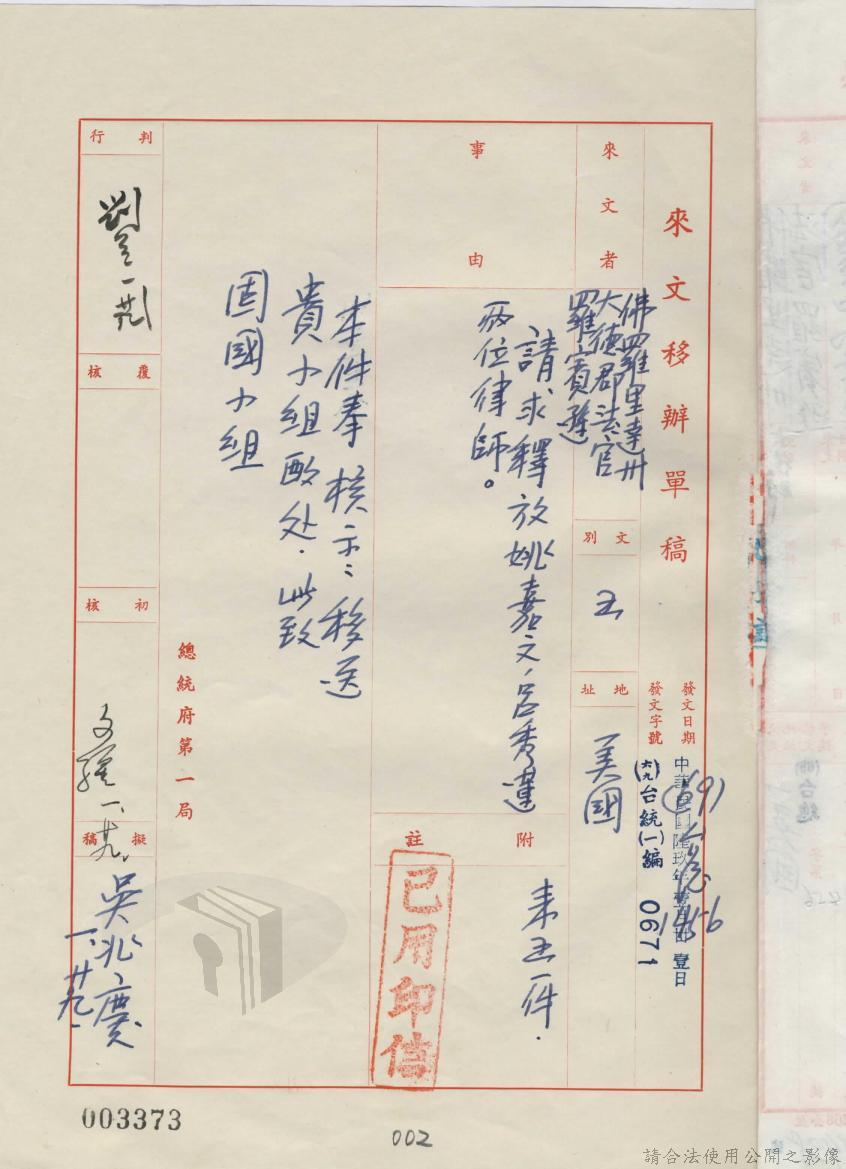 來文移辦單稿
發文日期
中華民國陸玖年壹月卅壹日
發文字號
(六九)台統(一)編 0671
來文者
佛羅里達州
大德郡法官
羅賓遜
文別
函
地址
美國
事由
請求釋放姚嘉文、呂秀蓮
兩位律師。
附註
來函一件.
已用印信
本件奉 核示:移送
貴小組酌处.此致
固國小組
總統府第一局
判行
一.廿九
覆核
初核
一.廿九.
擬稿
吳兆慶
一.廿九.
003373
002
請合法使用公開之影像